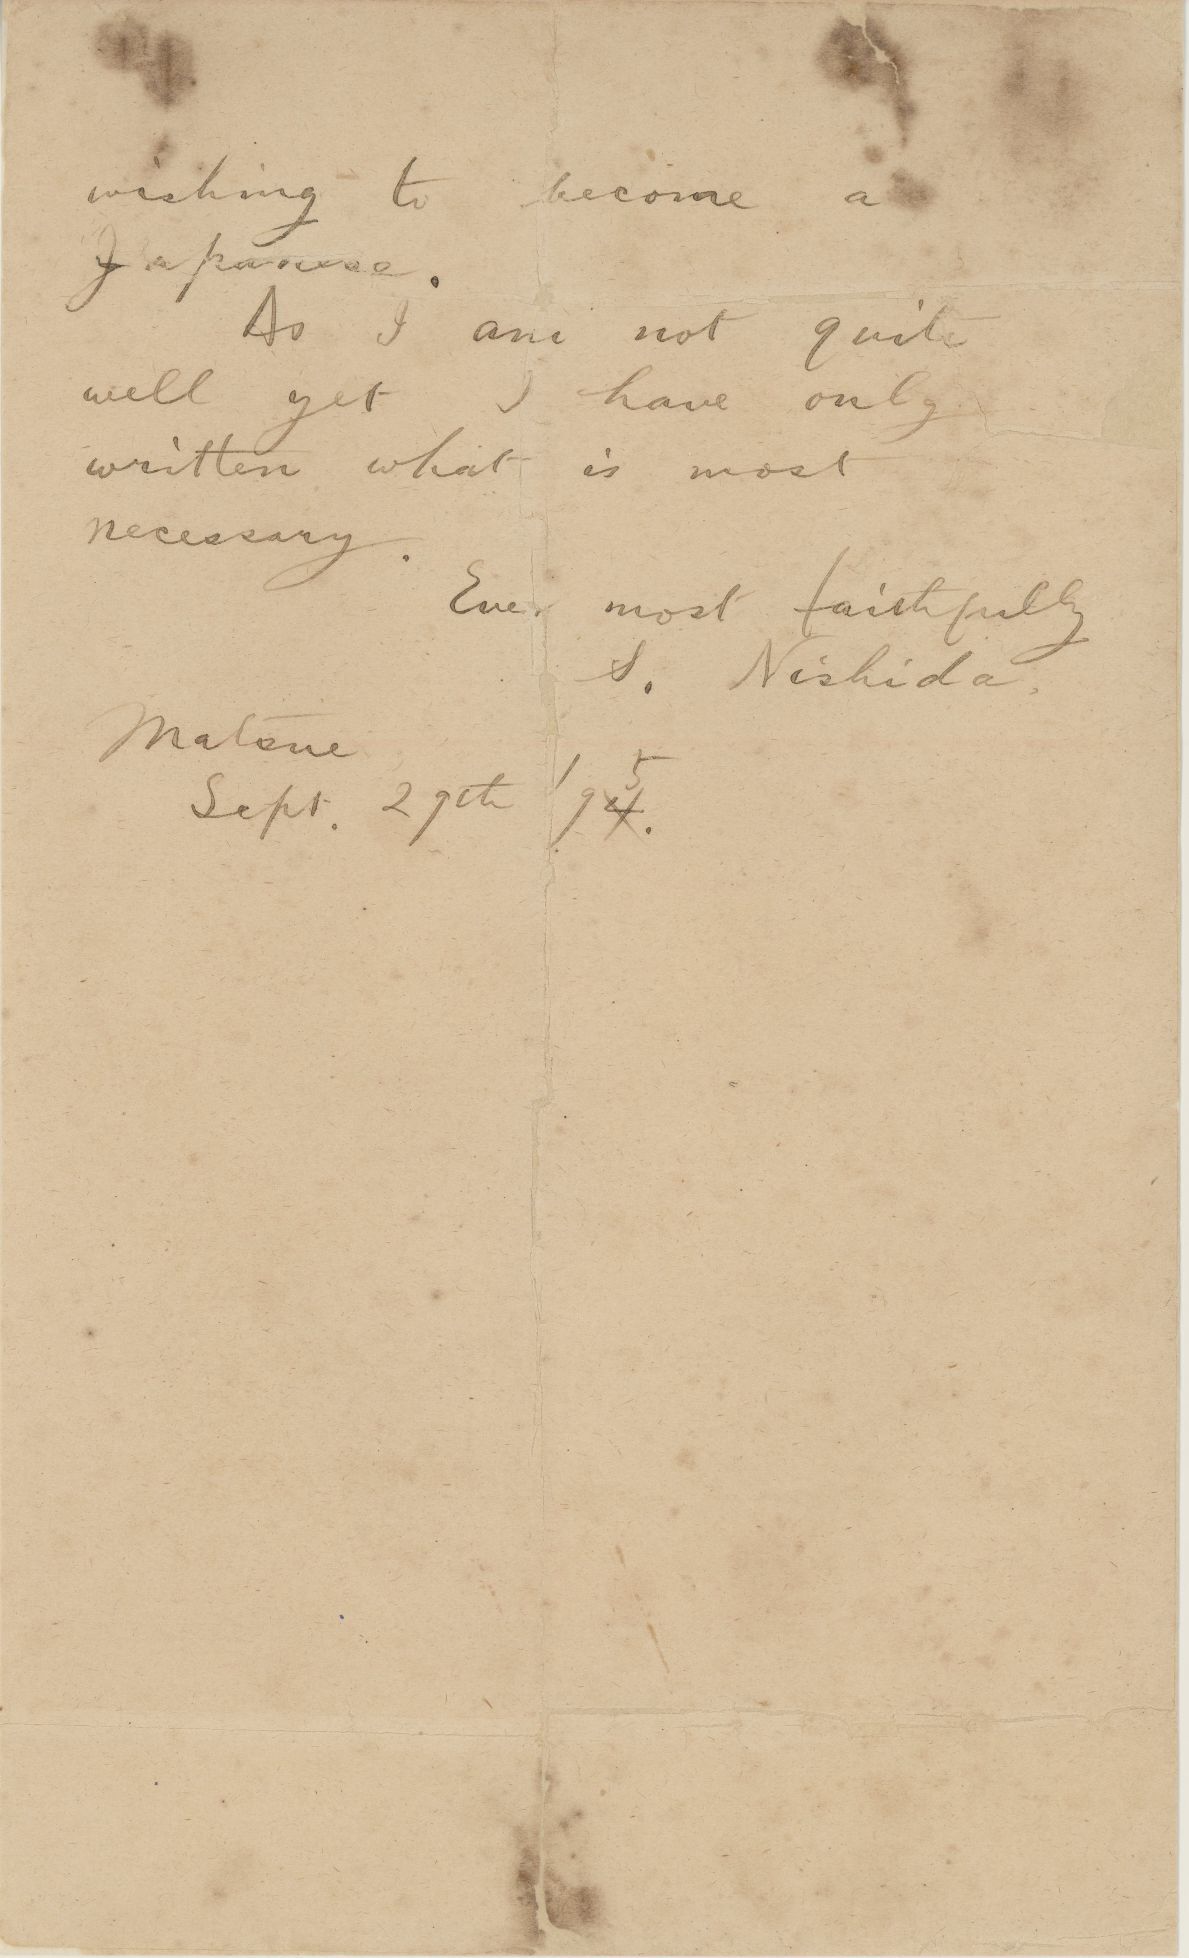 wishing to become a
Japanese.
As I am not quite
well yet I have only
written what is most
necessary.
Ever most faithfully
S. Nishida.
Matsue
Sept. 29th '945.